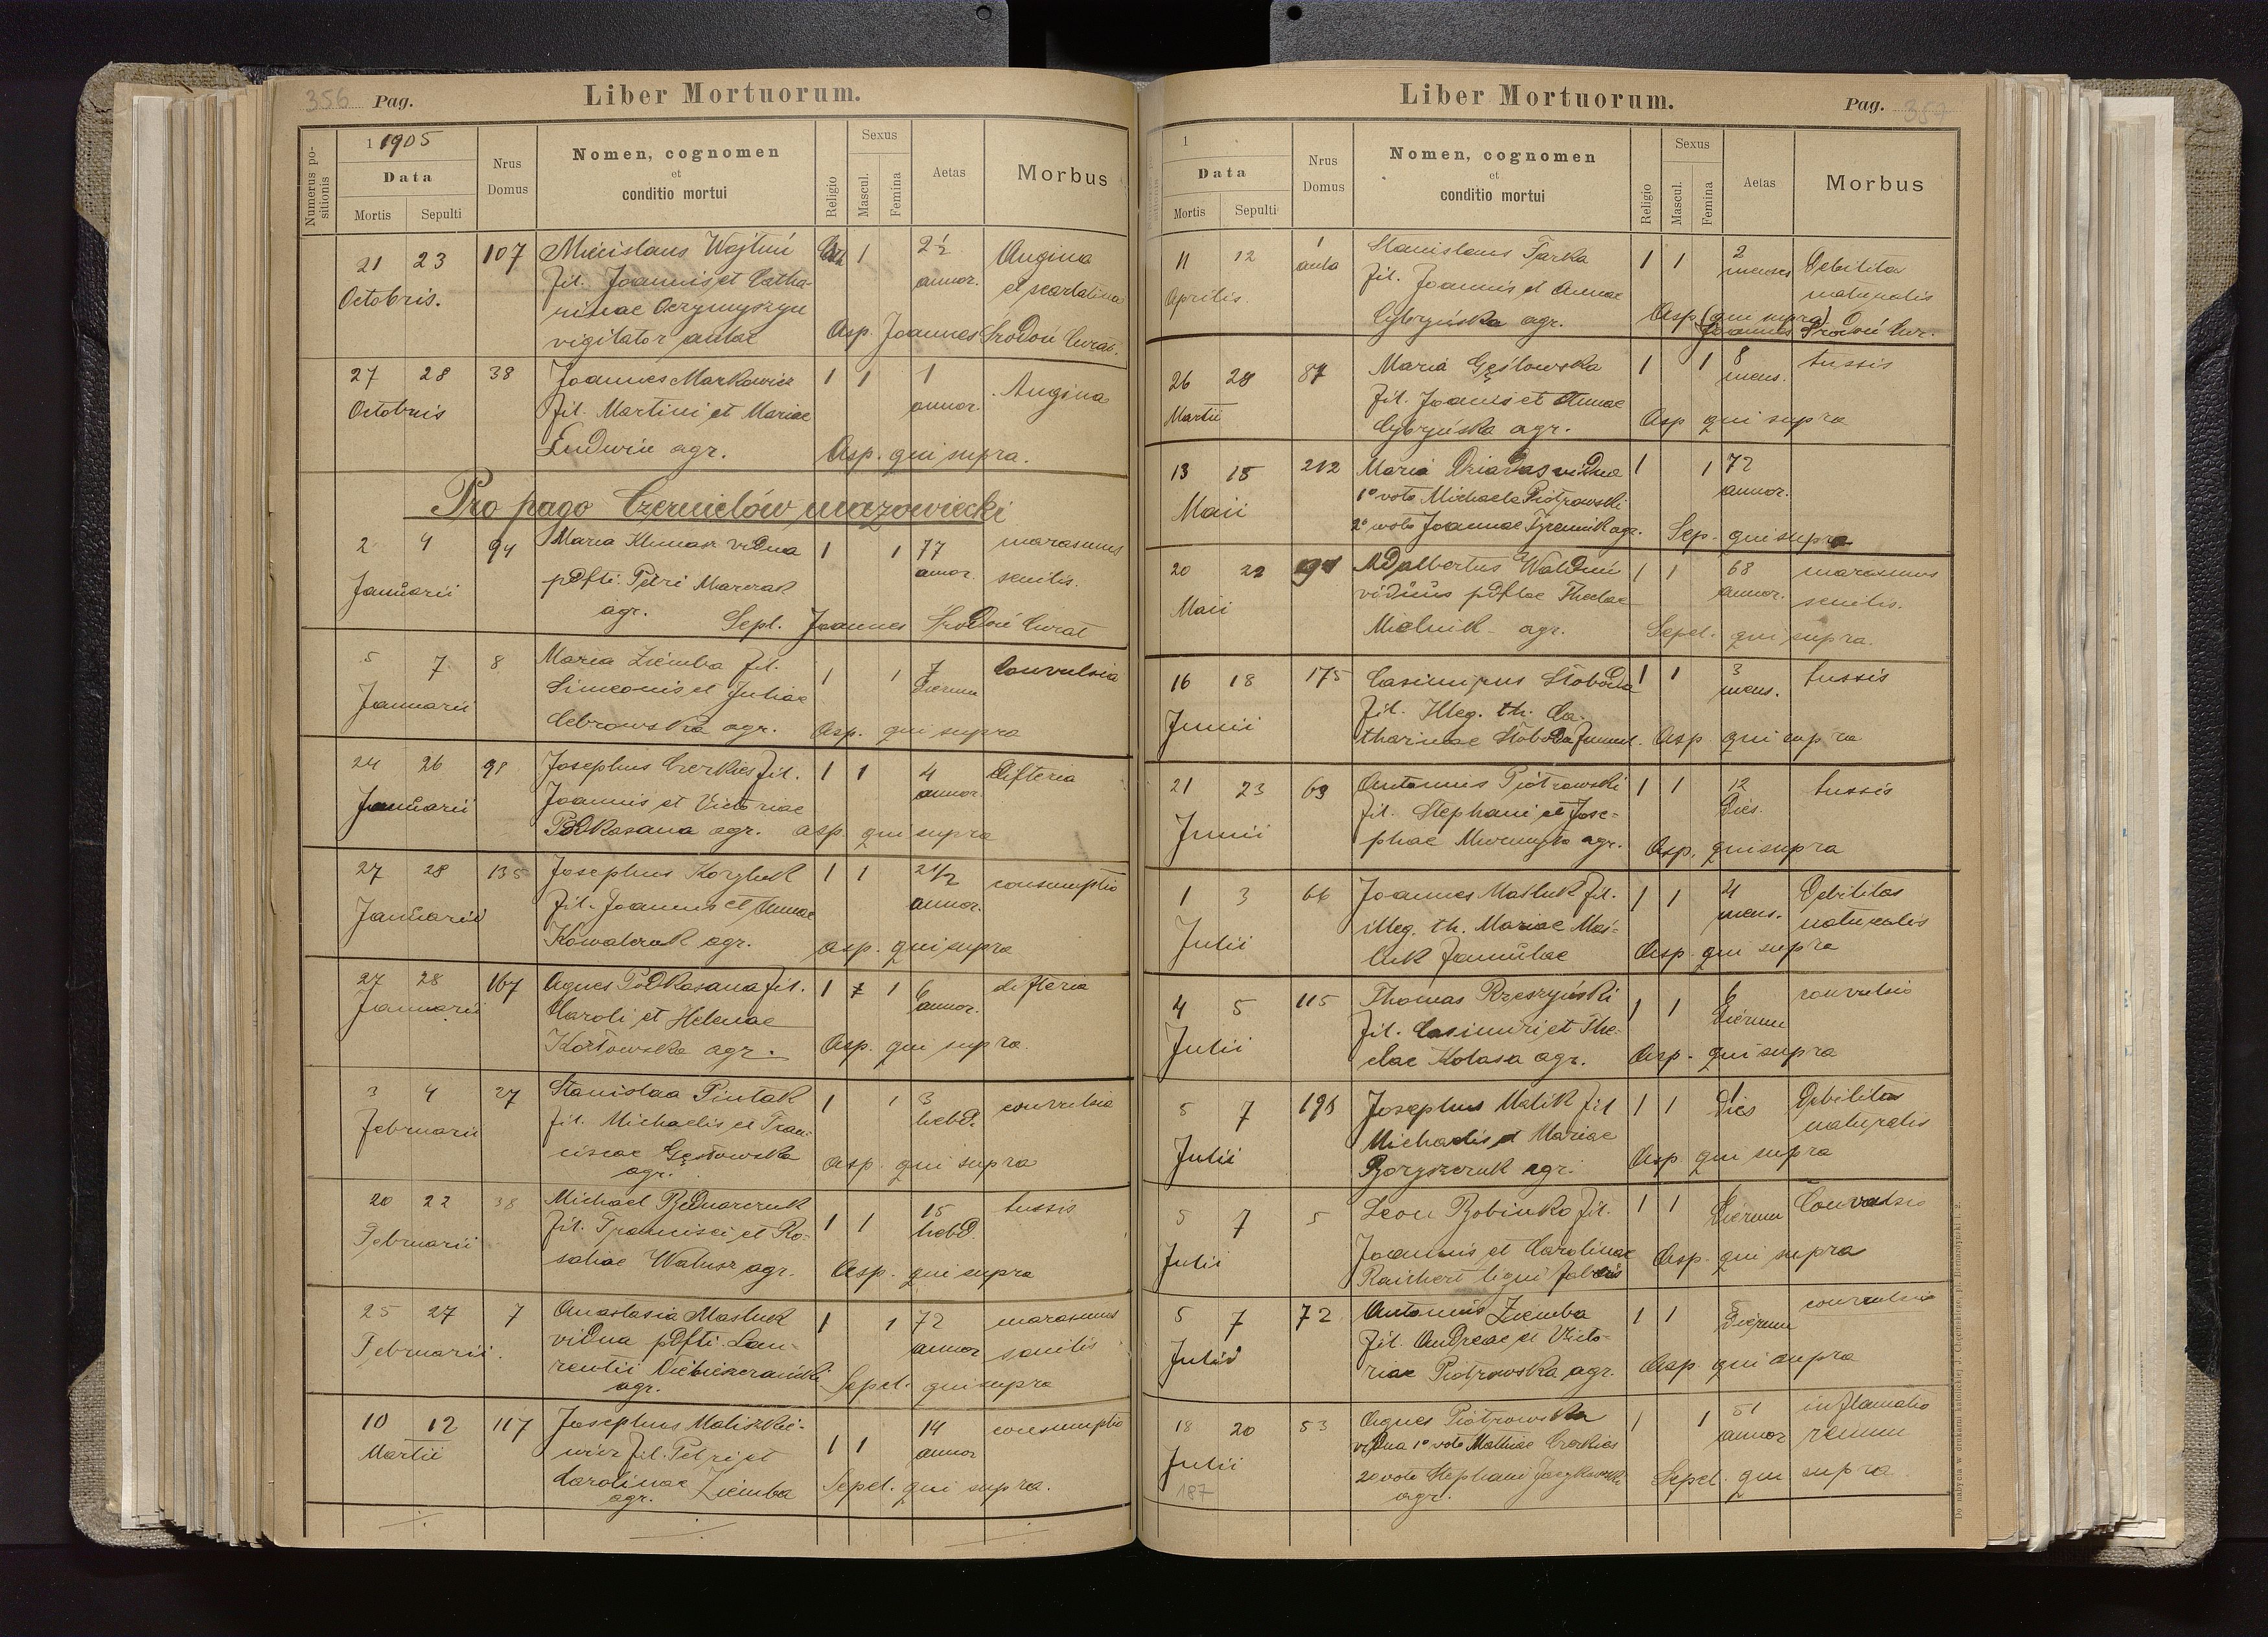 356 Pag.
Liber Mortuorum.
Numerus positionis
1 1905
Data
Mortis Sepulti
Nrus Domus
Nomen, cognomen
et
conditio mortui
Religio
Sexus
Mascul.
Femina
Aetas
Morbus
21 23 107 Miecislaus Wojtuń 1 2½ Angina
Octobris. fil. Joannis et Catha- annor. et scarlatina
rinae
vigilator aulae Asp. Joannes Środoń Curat.
27 28 38 Joannes Markowicz 1 1 1 Angina
Octobris fil. Martini et Mariae annor.
Ludwin agr. Asp. qui supra.
Pro pago Czernielów mazowiecki
2 4 94 Maria Klimak vidua 1 1 77 marasmus
Januarii pdfti. Petri Marczak annor. senilis.
agr. Sepl. Joannes Środoń Curat
5 7 8 Maria Ziemba fil. 1 1 7 Convulsia
Januarii Simeonis et Juliae dierum
Cebrowska agr. Asp. qui supra
24 26 98 Josephus Czerkies fil. 1 1 4 difteria
Januarii Joannis et Victoriae annor.
Podkasana agr. asp. qui supra
27 28 135 Josephus Korzluk 1 1 2 1/2 consumptio
Januarii fil. Joannis et Annae annor.
Kowalczuk agr. asp. qui supra
27 28 167 Agnes Podkasana fil. 1 1 6 difteria
Januarii Caroli et Helenae annor.
Kozłowska agr. Asp. qui supra.
3 4 27 Stanislaa Pintak 1 1 3 convulsia
Februarii fil. Michaelis et Fran- hebd.
ciscae Gęsłowska
agr. Asp. qui supra
20 22 38 Michael Bednarczuk 1 1 15 tussis
Februarii fil. Francisci et Ro- hebd.
saliae Walusz agr. Asp. qui supra
25 27 7 Anastasia Masluk 1 1 72 marasmus
Februarii. vidua pdfti. Lau- annor senilis
rentii
agr. Sepel. qui supra
10 12 117 Josephus Maliszkie- 1 1 14 consumptio
Martii wicz fil. Petri et annor
Carolinae Ziemba
agr. Sepel. qui supra.
Liber Mortuorum.
Pag. 357
1
Data
Mortis Sepulti
Nrus Domus
Nomen, cognomen
et
conditio mortui
Religio
Sexus
Mascul.
Femina
Aetas
Morbus
11 12 1 Stanislaus Farka 1 1 2 Debilitas
Aprilis. aula fil. Joannis et Annae menses naturalis
Cybryńska agr. Asp (qui supra) Joannes Środoń Cur.
26 28 87 Maria Gęsłowska 1 1 8 tussis
Martii fil. Joannis et Annae mens.
Cybryńska agr. Asp qui supra
13 15 212 Maria Dziadas vidua 1 1 72
Maii 1º voto Michaele Piotrowski annor.
2º voto Joannae agr. Sep. qui supra
20 22 Adalbertus Walduń 1 1 68 marasmus
Maii viduus pdftae Theclae annor. senilis.
Mielnik agr. Sepel. qui supra.
16 18 175 Casimirus Słoboda 1 1 3 tussis
Junii fil. Illeg. th. Ca- mens.
tharinae Słoboda famul. Asp qui supra
21 23 69 Antonius Piotrowski 1 1 12 tussis
Junii fil. Stephani et Jose- dies.
phae agr. Asp. qui supra
1 3 66 Joannes Masluk fil. 1 1 4 Debilitas
Julii illeg. th. Mariae Mas- mens. naturalis
luk famulae Asp qui supra
4 5 115 Thomas Rzeszyński 1 1 6 convulsio
Julii fil. Casimiri et The- dierum
clae Kolasa agr. Asp. qui supra
5 7 198 Josephus Malik fil 1 1 1 Debilitas
Julii Michaelis et Mariae dies naturalis
Boryszczuk agr. Asp. qui supra
5 7 5 Leon Bobinko fil. 1 1 6 Convulsio
Julii Joannis et Carolinae dierum
Raichert ligni fabris Asp. qui supra
5 7 72 Antonius Ziemba 1 1 5 convulsio
Julii fil. Andreae et Victo- dierum
riae Piotrowska agr. Asp qui supra
18 20 53 Agnes Piotrowska 1 1 51 inflamatio
Julii vidua 1º voto Mathiae Czerkies annor renum
2º voto Stephani agr. Sepel. qui supra
187